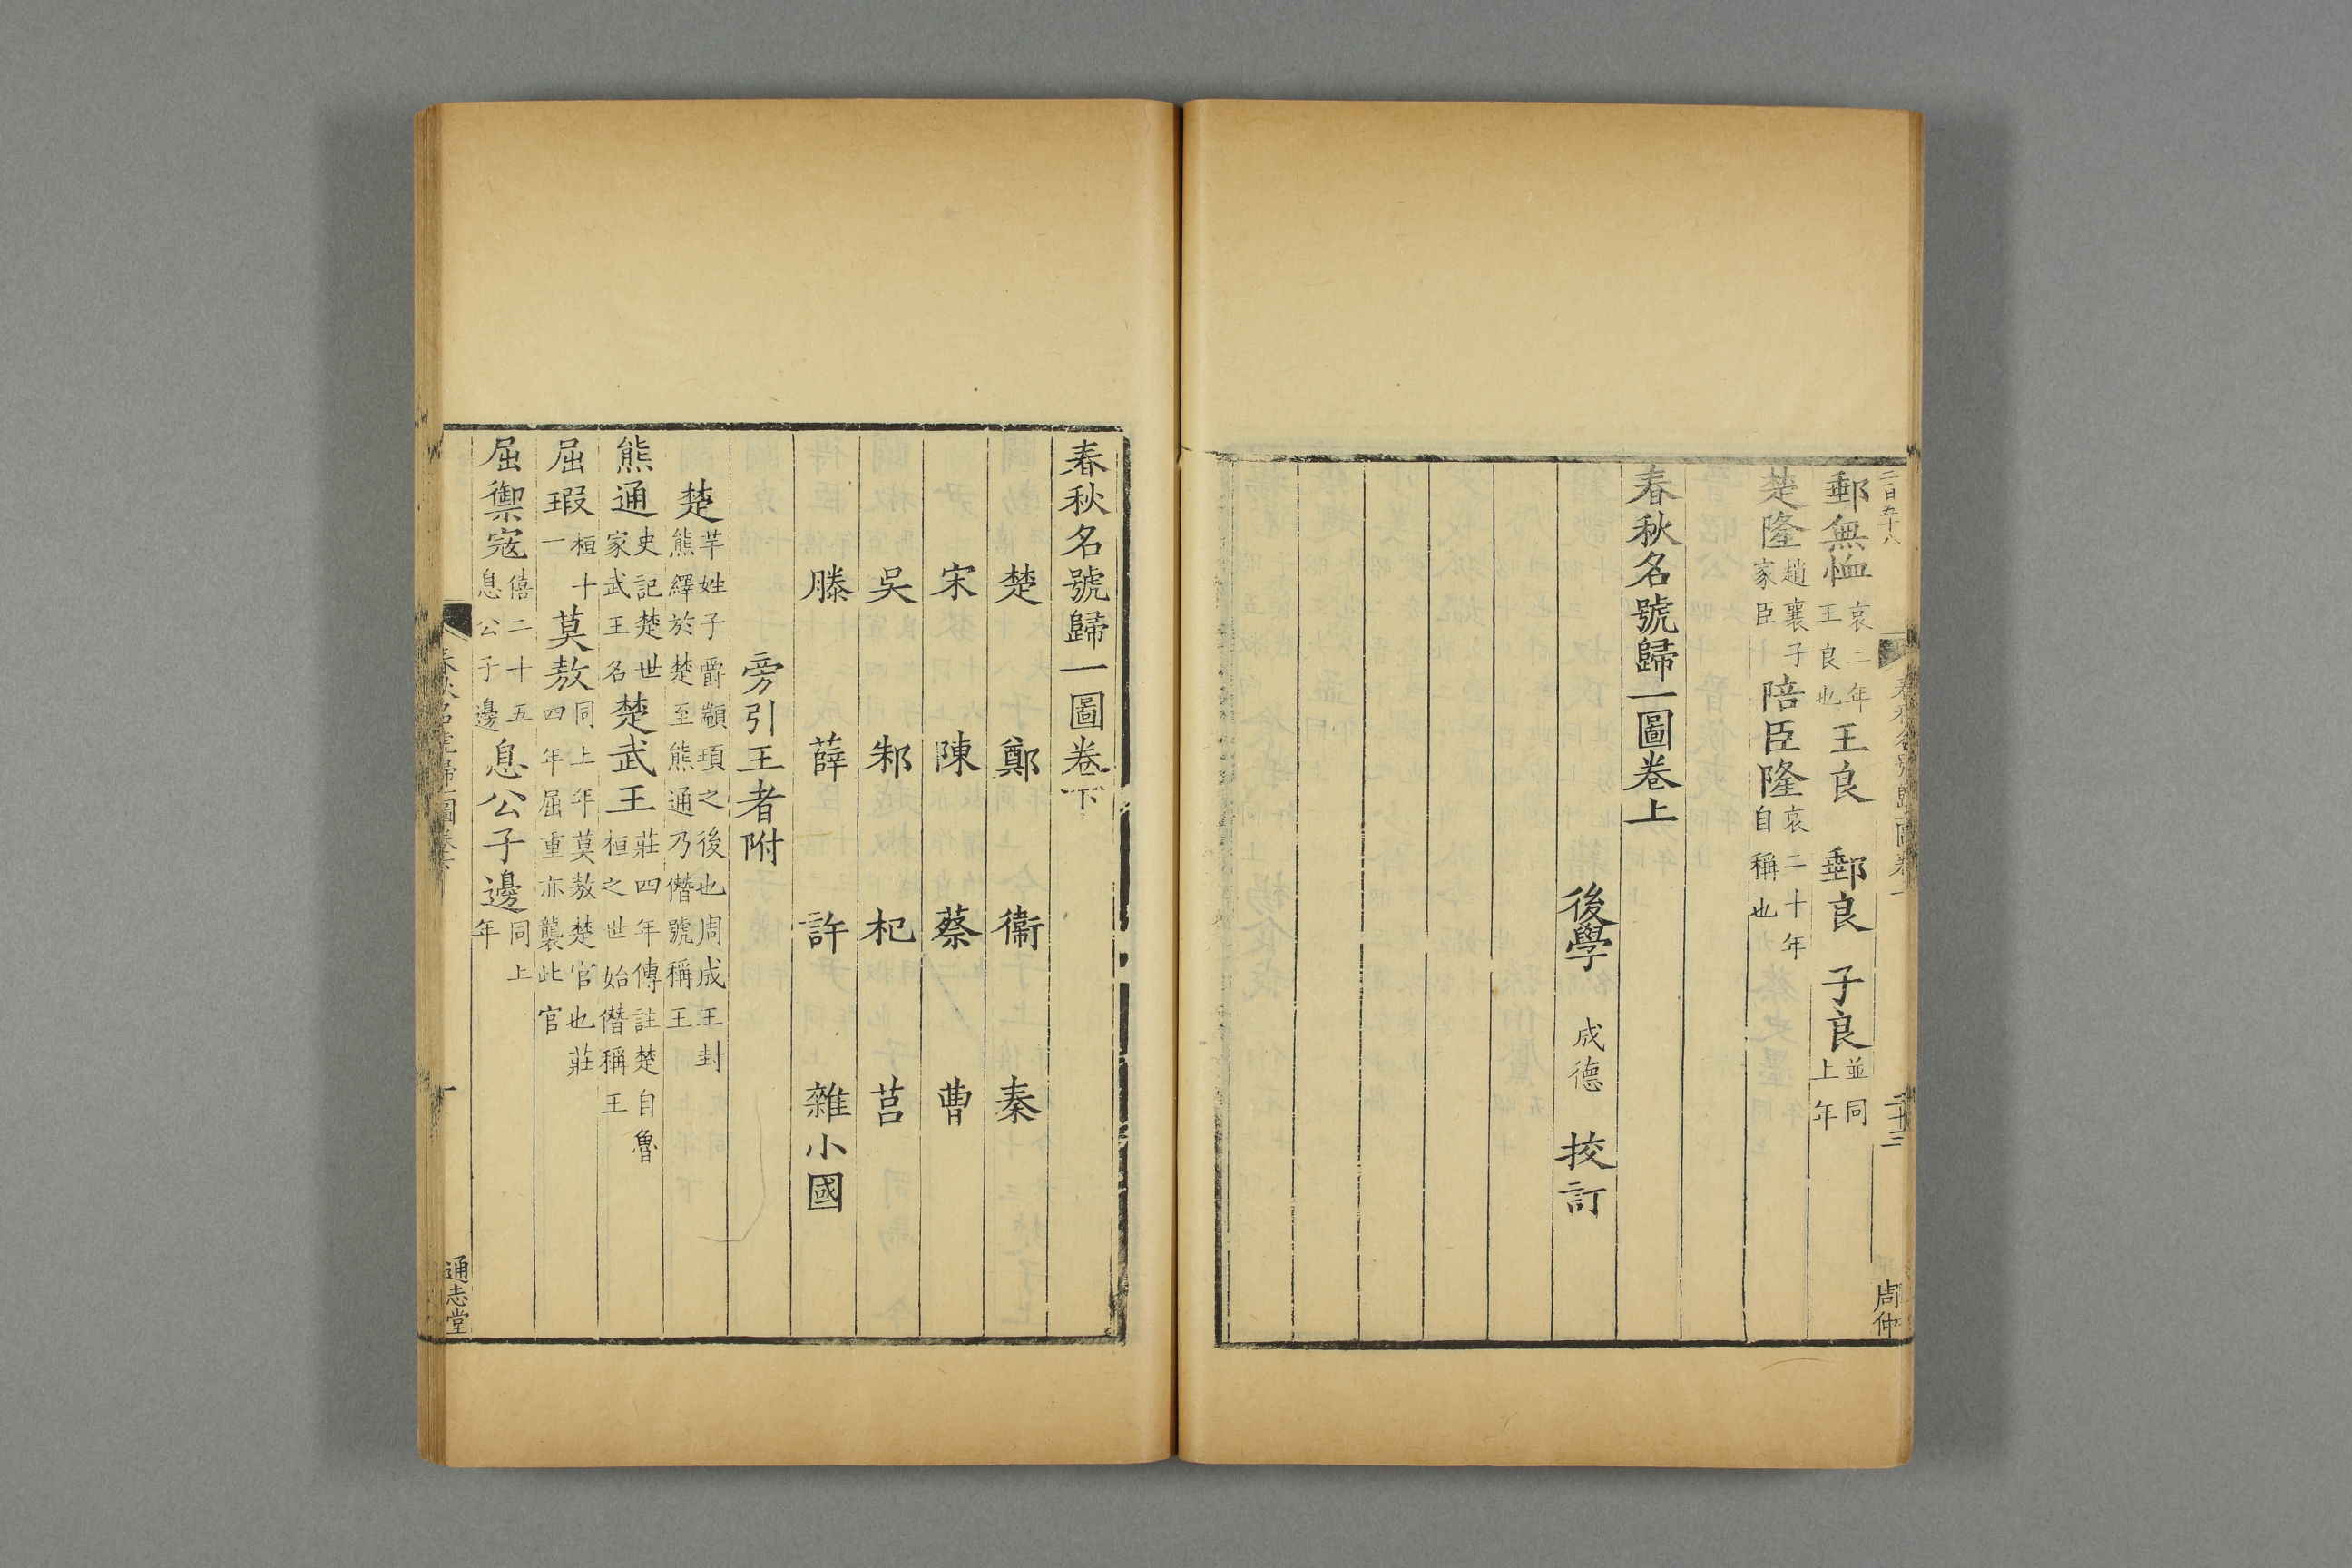 郵無恤哀二年王良也王良　郵良　子良並同上年
楚隆趙襄子家臣陪臣隆哀二十年自稱也
春秋名號歸一圖卷上
後學　成德　挍訂
周仲
春秋名號歸一圖卷下
楚　鄭　衞　秦
宋　陳　蔡　曹
吳　邾　杞　莒
滕　薛　許　雜小國
旁引王者附
楚芊姓子爵顓頊之後也周成王封熊繹於楚至熊通乃僭號稱王
熊通史記楚世家武王名楚武王莊四年傳註楚自魯桓之世始僭稱王
屈瑕桓十一莫敖同上年莫敖楚官也莊四年屈重亦襲此官
屈禦寇僖二十五息公子邊息公子邊同上年
通志堂